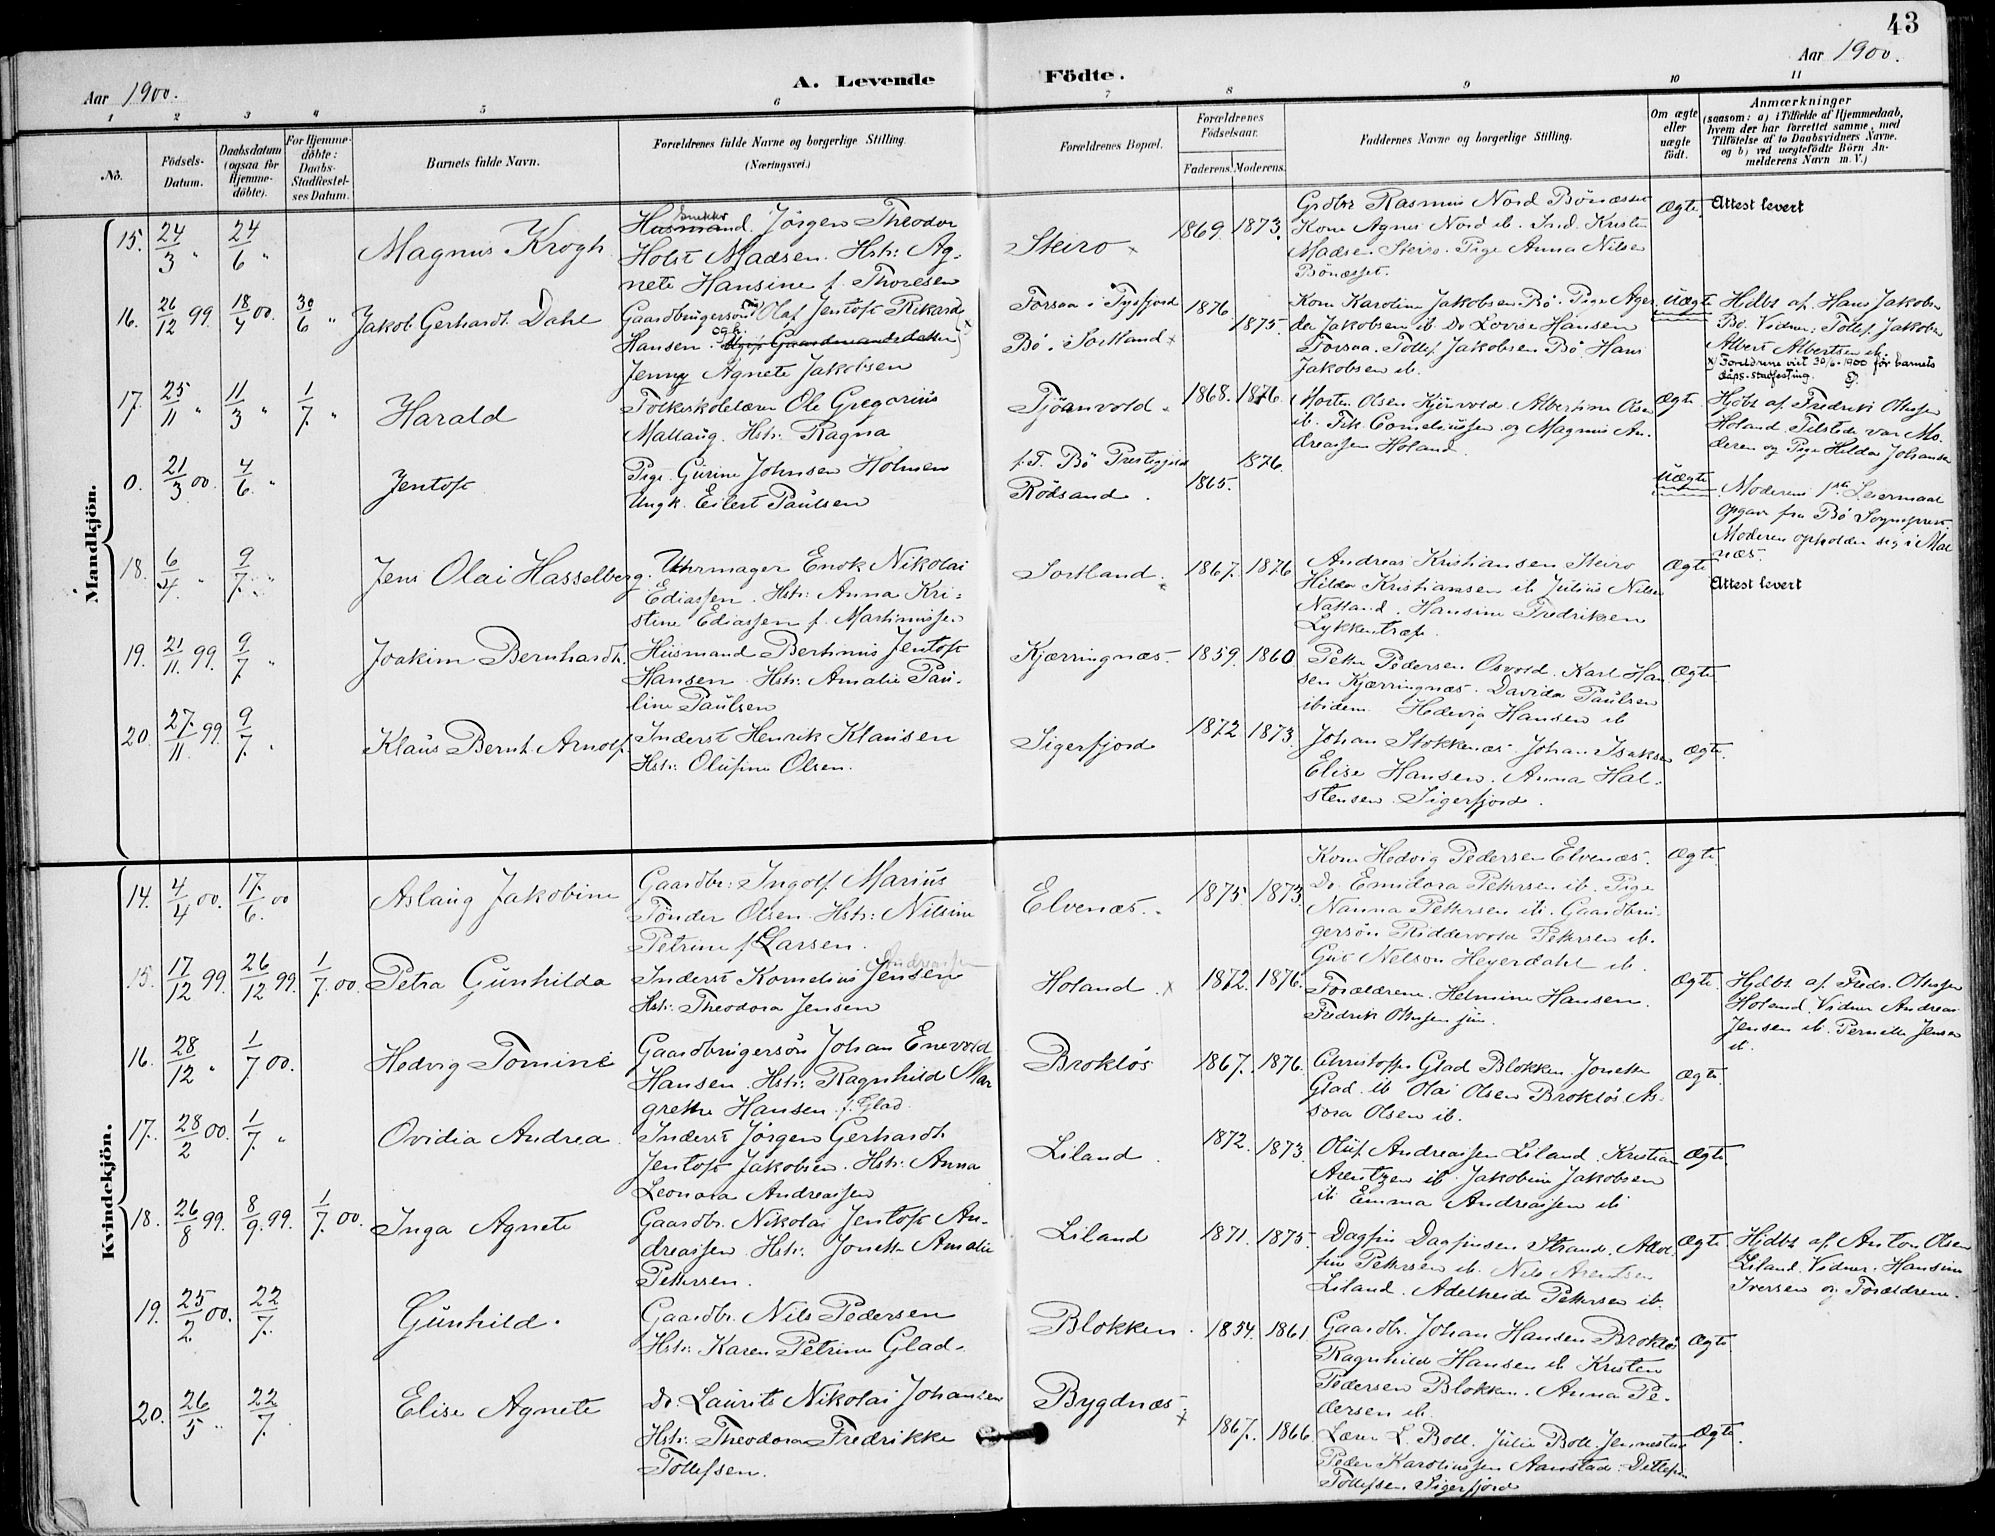 43
Aar 1900.
A. Levende Födte.
Aar 1900.
1 2 3 4 5 6 7 8 9 10 11
No.
Födsels-Datum.
Daabsdatum (ogsaa for Hjemme-döbte).
For Hjemme-döbte: Daabs-Stadfæstel-ses Datum.
Barnets fulde Navn.
Forældrenes fulde Navne og borgerlige Stilling.
(Næringsvei.)
Forældrenes Bopæl.
Forældrenes Födselsaar.
Faderens. Moderens.
Faddernes Navne og borgerlige Stilling.
Om ægte eller uægte födt.
Anmærkninger
(saasom: a) i Tilfælde af Hjemmedaab,
hvem der har forrettet samme, med
Tilföielse af to Daabsvidners Navne.
og b) ved uægtefödte Börn An-
melderens Navn m. V.)
Mandkjön.
15. 24/3 " 24/6 " Magnus Krogh
Husmand. Snekker Jörgen Theodor
Holst Madsen. Hstr: Ag-
nete Hansine f. Thoresen
Steiro x 1869. 1873.
Grdbr Rasmus Nord Bönæsset
Kone Agnes Nord ib. Ind. Kristen
Madsen Steiro. Pige Anna Nilsen
Bönæsset.
Ægte Attest levert
16. 26/12 99. 18/4 00. 30/6 " Jakob Gerhardt Dahl
Gaardbrugersön Olaf Jentoft Rikard
Hansen. og h. Ugift Gaardmandsdatter
Jenny Agnete Jakobsen
Forsaa i Tysfjord
Bö i Sortland x
1876. 1875.
Kone Karoline Jakobsen Bö. Pige Agen
da Jakobsen ib. Do Lovise Hansen
Forsaa. Tollef Jakobsen Bö Hans
Jakobsen ib.
Uægte
Hjdbt af Hans Jakobsen
Bö. Vidner: Tollef Jakobsen
Albert Albertsen ib.
x) Foreldrene viet 30/6-1900 før barnets
dåps-stadfesting.
17. 25/11 " 11/3 " 1/7 " Harald
Folkeskolelærer Ole Gregorius
Mallaug. Hstr: Ragna
Tjöanvold. 1868. 1876.
Morten Olsen Kjönvold. Albertine Olsen
ib. Frk Corneliussen og Magnus An-
dreassen Holand.
Ægte
Hjdbt af Fredrik Olufsen
Holand Tilstede var Mo-
deren og Pige Hilda Johansen
0. 21/3 00. 4/6 " Jentoft
Pige Gurine Johnsen Holmen
Ungk. Eilert Paulsen
f. T. Bö Prestegjeld 1876.
Rödsand. 1865.
Uægte
Moderens 1ste Leiermaal
opgav fra Bö Sogneprest.
Moderen opholder sig i Mal
næs.
18. 6/4 " 9/7 " Jens Olai Hasselberg.
Uhrmager Enok Nikolai
Ediassen. Hstr: Anna Kri-
stine Ediassen f. Martinussen
Sortland. x 1867. 1876
Andreas Kristiansen Steiro
Hilda Kristiansen ib Julius Nilsen
Natland. Hansine Fredriksen
Lykkentræf.
Ægte Attest levert
19. 21/11 99. 9/7 " Joakim Bernhardt.
Husmand Bertinus Jentoft
Hansen. Hstr: Amalie Pau-
line Paulsen
Kjærringnæs. 1859. 1860
Peter Pedersen Osvold. Karl Han
sen Kjærringnæs. Davida Paulsen
ibidem Hedevig Hansen ib
Ægte
20. 27/11 99. 9/7 " Klaus Bernh. Arnolf.
Inderst Henrik Klausen
Hstr: Olufine Olsen.
Sigerfjord 1872 1873.
Johan Stokkenæs. Johan Isaksen
Elise Hansen. Anna Hal-
stensen Sigerfjord.
Ægte.
Kvindekjön.
14. 4/4 00. 17/6. 00 Aslaug Jakobine
Gaardbr: Ingolf Marius
Tönder Olsen. Hstr: Nilsine
Petrine f. Larsen.
Elvenæs. 1875. 1873.
Kone Hedvig Pedersen Elvenæs.
Do. Emidora Petersen ib. Pige
Nanna Petersen ib. Gaardbru-
gersön Riddervold Petersen ib.
Gut Nelson Heyerdahl ib.
Ægte
15. 17/12 99. 26/12 99. 1/7. 00. Petra Gunhilda
Inderst Kornelius Jensen Andreassen
Hstr: Theodora Jensen
Holand. x 1872. 1876.
Forældrene. Helmine Hansen.
Fredrik Olufsen jun.
Ægte.
Hjdbt. af Fredr. Olufsen
Holand. Vidner Andreas
Jensen ib. Pernille Jensen
ib.
16. 28/12 " 1/7 00. Hedvig Tomine
Gaardbrugersön Johan Enevold
Hansen. Hstr: Ragnhild Mar
grethe Hansen f. Glad.
Broklös 1867. 1876.
Christoffer Glad Blokken. Jonette
Glad. ib Olai Olsen Broklös As-
sora Olsen ib.
Ægte.
17. 28/2 00. 1/7 " Ovidia Andrea
Inderst Jörgen Gerhardt
Jentoft Jakobsen. Hstr: Anna
Leonora Andreassen
Liland. 1872. 1873.
Oluf Andreassen Liland. Kristian
Arentzen ib. Jakobine Jakobsen
ib Emma Andreassen ib
Ægte
18. 26/8 99. 8/9. 99. 1/7. 00. Inga Agnete
Gaardbr. Nikolai Jentoft An-
dreassen. Hstr: Jonette Amalie
Petersen.
Liland 1871. 1875.
Dagfin Dagfinsen Strand. Adol-
fine Petersen ib. Nils Arentsen
Liland. Adelheide Petersen ib.
Ægte
Hjdbt af Anton Olsen
Liland. Vidner: Hansine
Iversen og Forældrene.
19. 25/2 00. 22/7. Gunhild.
Gaardbr. Nils Pedersen
Hstr: Karen Petrine Glad.
Blokken. 1854. 1861.
Gaardbr. Johan Hansen Broklös
Ragnhild Hansen ib Kristen
Pedersen Blokken. Anna Pe-
dersen ib.
Ægte
20. 26/5 " 22/7. Elise Agnete
Do. Laurits Nikolai Johansen
Hstr: Theodora Fredrikke
Tollefsen.
Bygdnæs. x 1867. 1866.
Lærer L. Boll. Julie Boll.
Peder Karoliussen Aanstad.
Tollefsen Sigerfjord
Ægte.